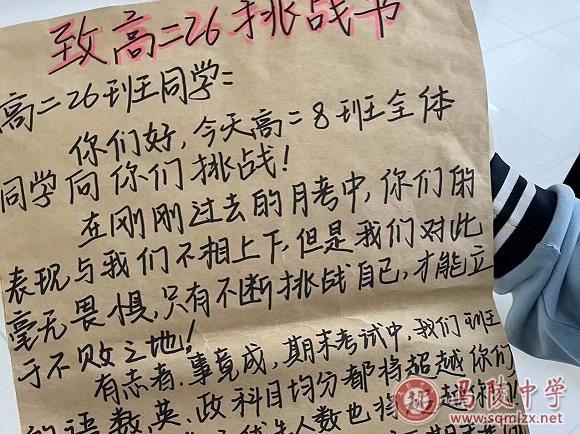 致高二26挑战书
高二26班王同学:
你们好,今天高二8班全体
同学向你们挑战!
在刚刚过去的月考中,你们的
表现与我们不相上下,但是我们对此
毫无畏惧,只有不断挑战自己,才能立
于不败之地!
有志者、事竟成,期末考试中,我们班
的语、数、英、政科目均分都将超越你们
人数也将超越
马陵中学
www.sqmlzx.net